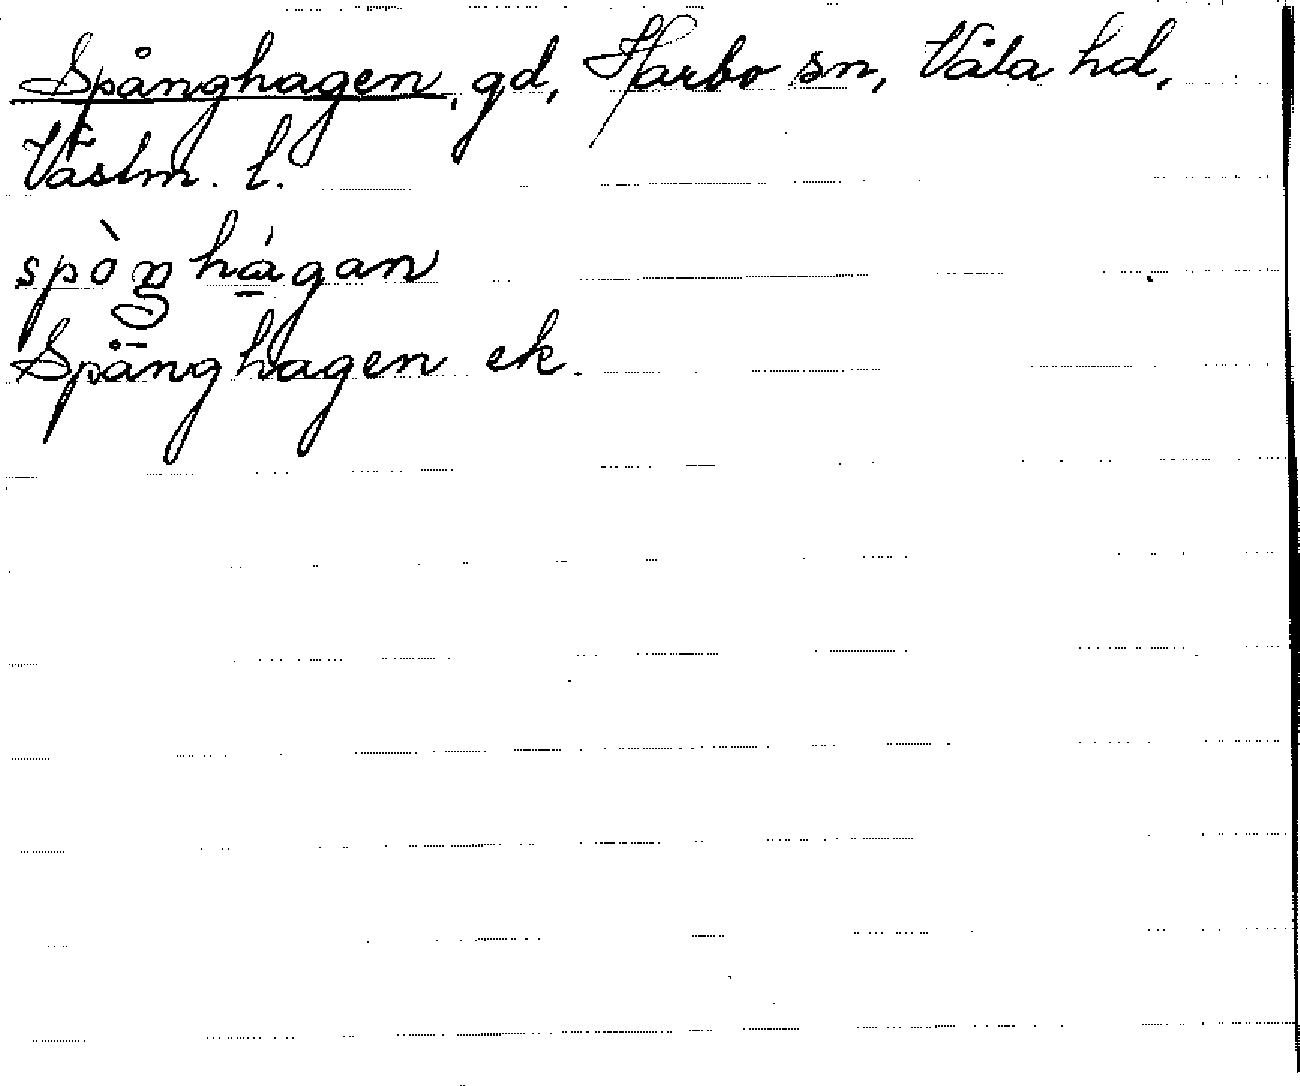 Spånghagen, gd, Harbo sn, Våla hd,
Västm. l.
spòŋhágan
Spånghagen ek.